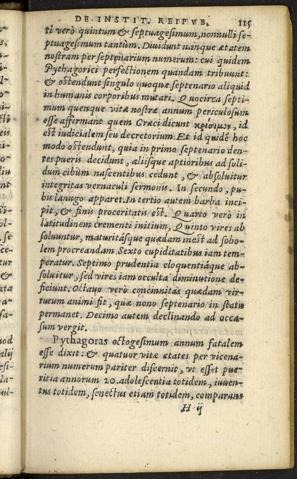 DE INSTIT. REIPVB. 115
ti verò quintum & septuagesimum, nonnulli se-
ptuagesimum tantùm. Diuidunt nanque ætatem
nostram per septenarium numerum: cui quidem
Pythagorici perfectionem quandam tribuunt:
& ostendunt singulo quoque septenario aliquid
in humanis corporibus mutari. Quocirca septi-
mum quenque vitæ nostræ annum periculosum
esse affirmant quem Græci dicunt κρίσιμον, id
est iudicialem seu decretorium. Et id quidē hoc
modo ostendunt, quia in primo septenario den-
tes pueris decidunt, aliisque aptioribus ad soli-
dum cibum nascentibus cedunt, & absoluitur
integritas vernaculi sermonis. In secundo, pu-
bis lanugo apparet. In tertio autem barba inci-
pit, & finis proceritatis est. Quarto verò in
latitudinem crementi initium, Quinto vires ab
soluuntur, maturitásque quædam inest ad sobo-
lem procreandam. Sexto cupiditatibus iam tem-
peratur. Septimo prudentia eloquentiáque ab-
soluitur, sed vires iam occulta diminutione de-
ficiunt. Octauo verò concinnitas quædam vir-
tutum animi fit, quæ nono septenario in statu
permanet. Decimo autem declinando ad occa-
sum vergit.
Pythagoras octogesimum annum fatalem
esse dixit: & quatuor vitæ ætates per vicena-
rium numerum pariter discernit, vt esset pue-
ritia annorum 20. adolescentia totidem, iuuen-
tus totidem, senectus etiam totidem, comparans
H ij